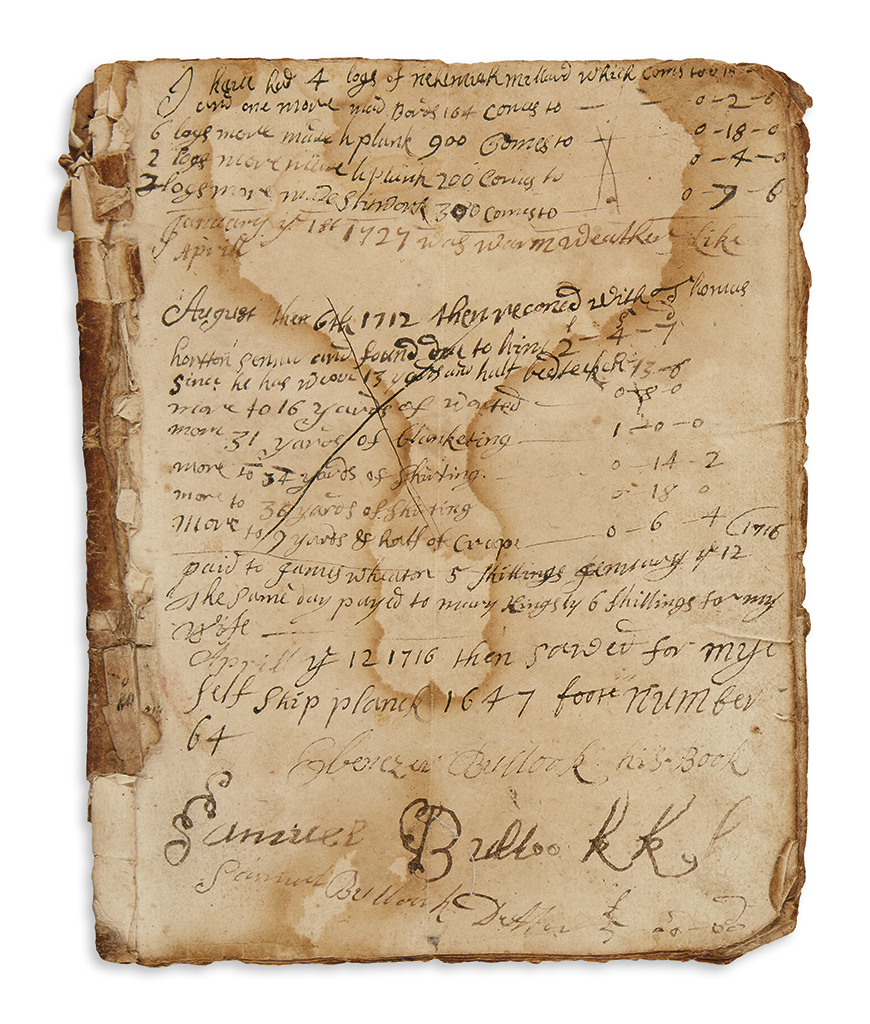 I have had 4 logs of nehemiah millard which Coms to
and one more mad Bords 164 Comes to — — 0-2-6
6 logs more made plank 900 Comes to — 0-18-0
2 logs more made plank 200 Comes to 0-4-0
logs more made 300 Comes to — 0-7-6
January ye 1st 1727 was warm weather Like
Aprill
August then 6th 1712 then reconed with thomas
hortton senner and found due to him 2-4-7
since he has wove 13 yards and half bedteck 13-6
more to 16 yards of worted — 0-8-0
more 31 yards of blanketing — 1-0-0
more to 34 yards of shirting. — 0-14-2
more to 36 yards of shirting 0-18-0
More to 9 yards & half of Crape — 0-6-4
paid to James wheaton 5 shillings feneuary ye 12 (1716
the same day payed to mary Kingsly 6 shillings for my
wife —
Aprill ye 12 1716 then sawed for my
self ship planck 1647 foote number
64
Ebenezer Bullook his Book
Samuel Bulloo k k
Samuel Bullook Debter